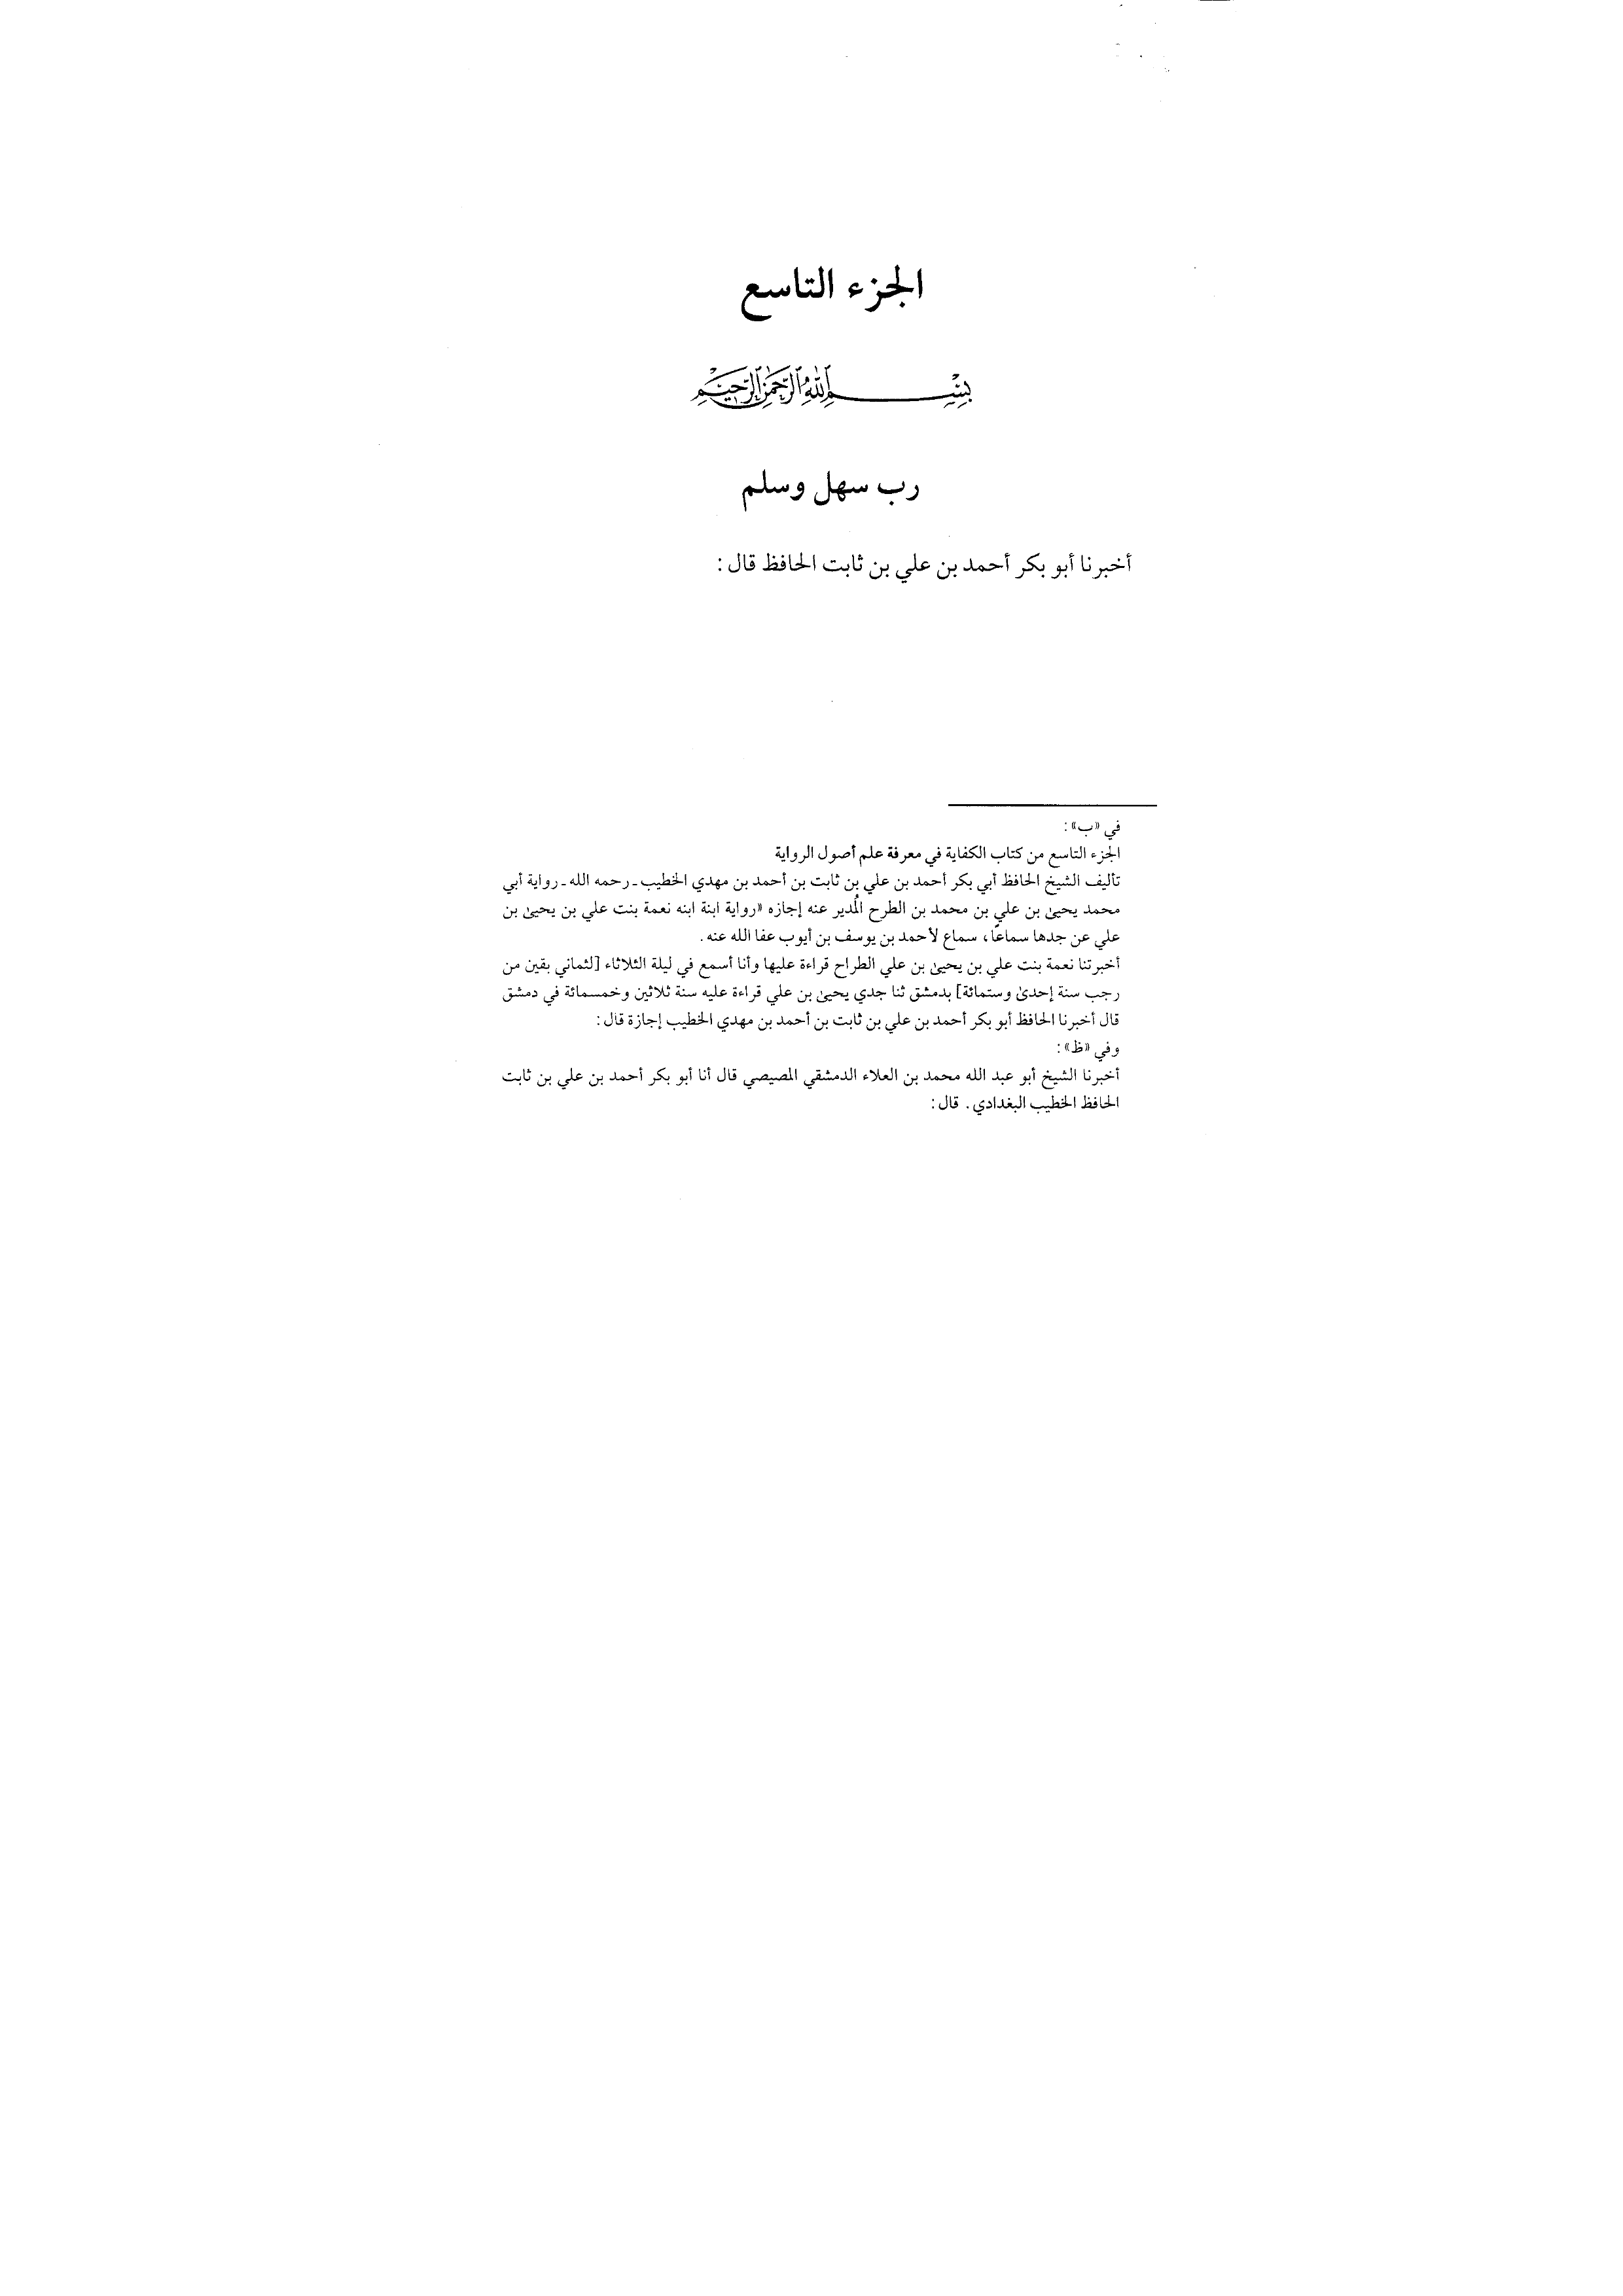 الجزء التاسع
بسم الله الرحمن الرحيم
رب سهل وسلم
أخبرنا أبو بكر أحمد بن علي بن ثابت الحافظ قال:
في «ب»:
الجزء التاسع من كتاب الكفاية في معرفة علم أصول الرواية
تأليف الشيخ الحافظ أبي بكر أحمد بن علي بن ثابت بن أحمد بن مهدي الخطيب ـ رحمه الله ـ رواية أبي
محمد يحيىٰ بن علي بن محمد بن الطرح المُدير عنه إجازه «رواية ابنة ابنه نعمة بنت علي بن يحيىٰ بن
علي عن جدها سماعًا، سماع لأحمد بن يوسف بن أيوب عفا الله عنه.
أخبرتنا نعمة بنت علي بن يحيىٰ بن علي الطراح قراءة عليها وأنا أسمع في ليلة الثلاثاء [لثماني بقين من
رجب سنة إحدىٰ وستمائة] بدمشق ثنا جدي يحيىٰ بن علي قراءة عليه سنة ثلاثين وخمسمائة في دمشق
قال أخبرنا الحافظ أبو بكر أحمد بن علي بن ثابت بن أحمد بن مهدي الخطيب إجازة قال:
وفي «ظ»:
أخبرنا الشيخ أبو عبد الله محمد بن العلاء الدمشقي المصيصي قال أنا أبو بكر أحمد بن علي بن ثابت
الحافظ الخطيب البغدادي. قال: